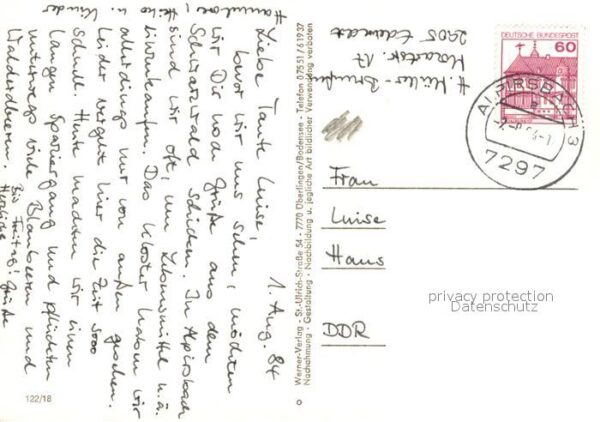 1. Aug. 84
Liebe Tante Luise,
bevor wir uns sehen, möchten
wir Dir noch Grüße aus dem
Schwarzwald schicken. In Alpirsbach
sind wir oft, um Lebensmittel u.ä.
einzukaufen. Das Kloster haben wir
allerdings nur von außen gesehen.
Leider vergeht hier die Zeit sooo
schnell. Heute machten wir einen
langen Spaziergang und pflückten
unterwegs viele Blaubeeren und
Walderdbeeren.
Bis Freitag! Herzliche Grüße
Hannelore, Heiko
u. Kinder
122/18
Werner-Verlag - St.-Ulrich-Straße 54 - 7770 Überlingen/Bodensee - Telefon 07551/61937
Nachahmung - Gestaltung - Nachbildung u. jegliche Art bildlicher Verwendung verboten
H. Müller-
17
2905 Edewecht
DEUTSCHE BUNDESPOST
60
ALPIRSBACH 3
7297
Frau
Luise
Haus
DDR
privacy protection
Datenschutz